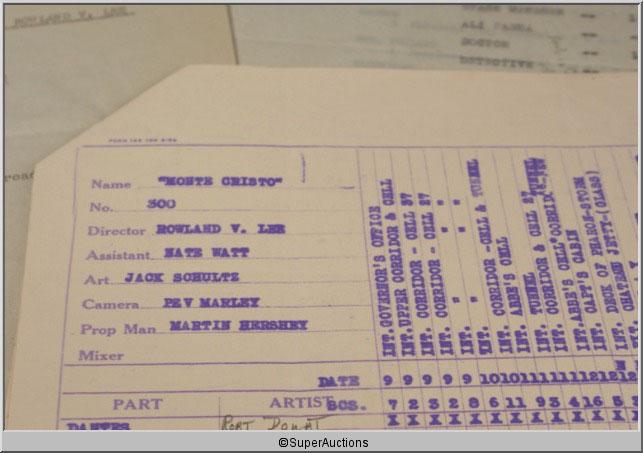 ROWLAND V. LEE
ALI PASHA
DOCTOR
DETECTIVE
Name "MONTE CRISTO"
No. 300
Director ROWLAND V. LEE
Assistant NATE WATT
Art JACK SCHULTZ
Camera PEV MARLEY
Prop Man MARTIN HERSHEY
Mixer
INT. GOVERNOR'S OFFICE
INT. UPPER CORRIDOR & CELL
INT. CORRIDOR - CELL 37
INT. CORRIDOR - CELL 27
INT. " "
INT. " "
INT. CORRIDOR -CELL & TUNNEL
INT. ABBE'S CELL
INT. TUNNEL
INT. CORRIDOR & CELL 27
INT. ABBE'S CELL
INT. CAPT'S CABIN
INT. DECK OF PHAROS-STORM
INT. CHATEAU JETTY-(GLASS)
DATE 9 9 9 9 9 10 10 11 11 11 11 12 12 12
PART ARTIST SCS. 7 2 3 2 8 6 11 93 4 16 5
DANTES Robt Donat X X X X X X X X X X X X
©SuperAuctions